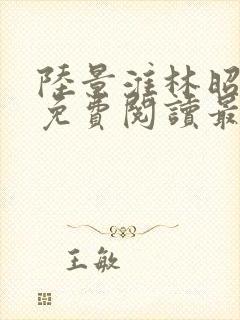 陸景淮林昭
免費閱讀最
王敏